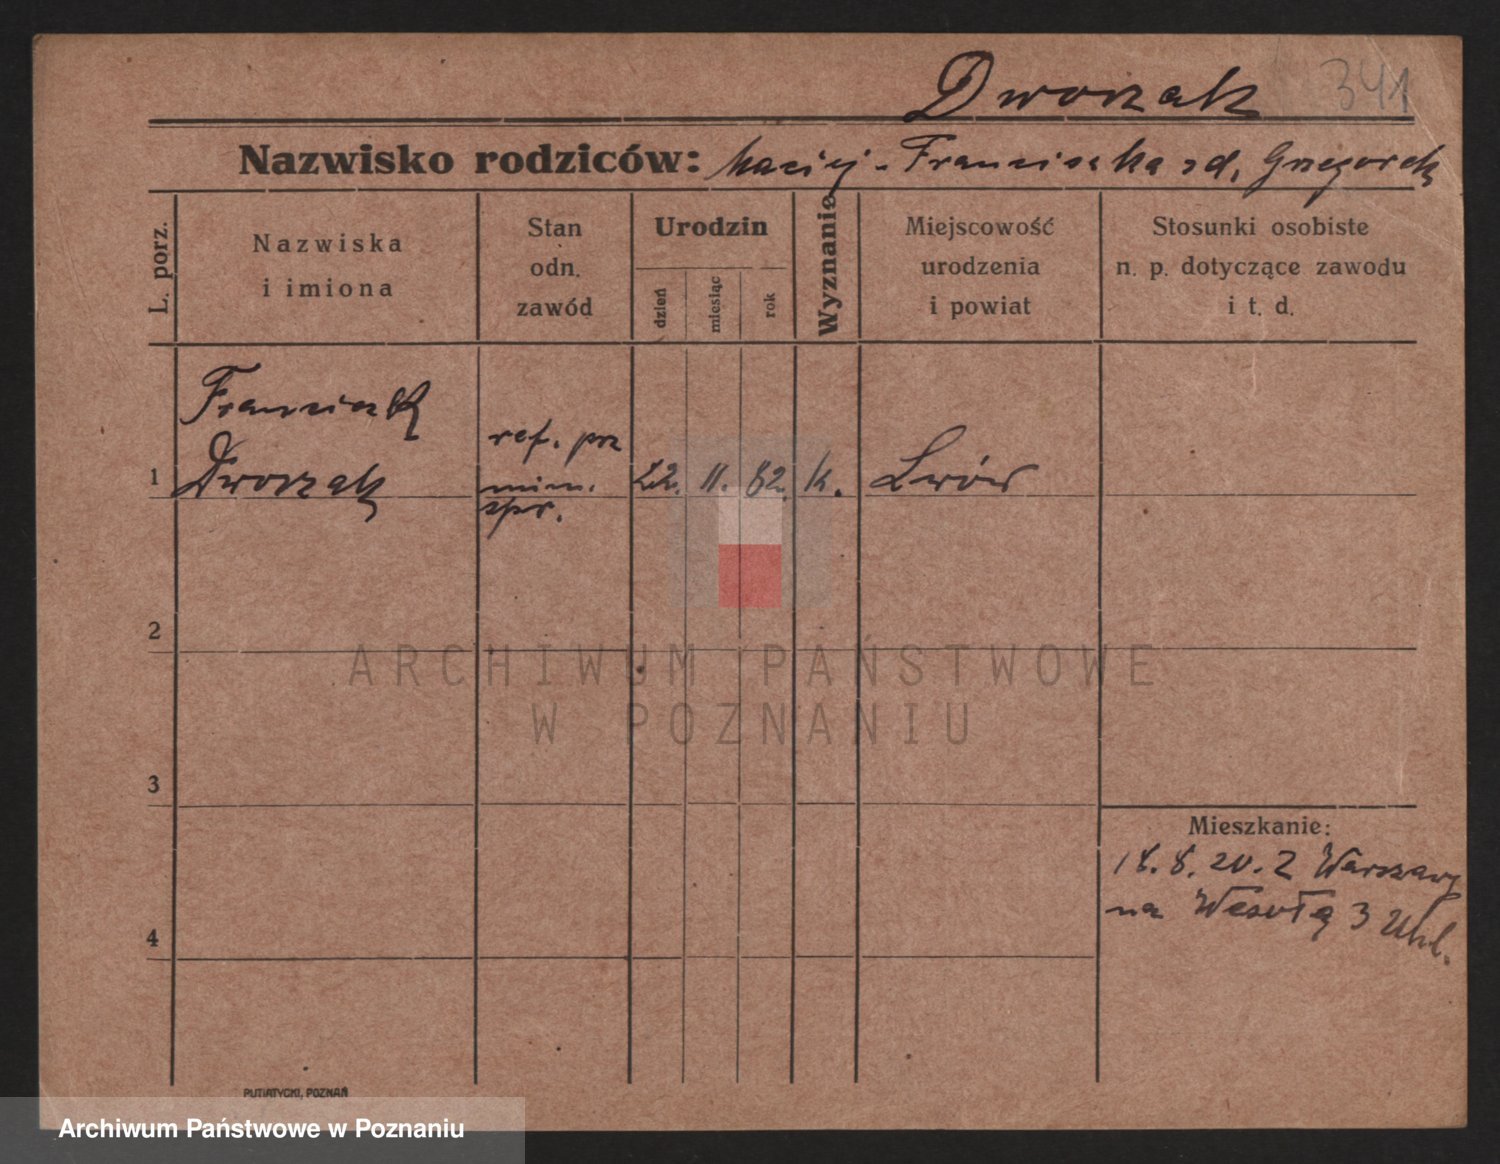 Dworzak 341
Nazwisko rodziców: Maciej - Franciszka zd. Grzegorek
L. porz.
Nazwiska
i imiona
Stan
odn.
zawód
Urodzin
dzień
miesiąc
rok
Wyznanie
Miejscowość
urodzenia
i powiat
Stosunki osobiste
n. p. dotyczące zawodu
i t. d.
Franciszek
1 Dworzak ref. prz 22. 11. 82. k. Lwów
min.
spr.
2
ARCHIWUM PAŃSTWOWE
W POZNANIU
3
Mieszkanie:
18.8.20. Z Warszawy
na Wesołą 3
4
PUTIATYCKI, POZNAŃ
Archiwum Państwowe w Poznaniu